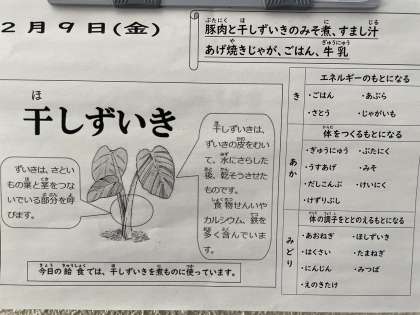 2月9日(金)
豚肉と干しずいきのみそ煮、すまし汁
あげ焼きじゃが、ごはん、牛乳
干しずいき
ずいきは、さとい
もの葉と茎をつな
いでいる部分を呼
びます。
干しずいきは、
ずいきの皮をむい
て、水にさらした
後、乾そうさせた
ものです。
食物せんいや
カルシウム、鉄を
多く含んでいま
す。
今日の給食では、干しずいきを煮ものに使っています。
き
エネルギーのもとになる
・ごはん ・あぶら
・さとう ・じゃがいも
あか
体をつくるもとになる
・ぎゅうにゅう ・ぶたにく
・うすあげ ・みそ
・だしこんぶ ・けいにく
・けずりぶし
みどり
体の調子をととのえるもとになる
・あおねぎ ・ほしずいき
・はくさい ・たまねぎ
・にんじん ・みつば
・えのきたけ